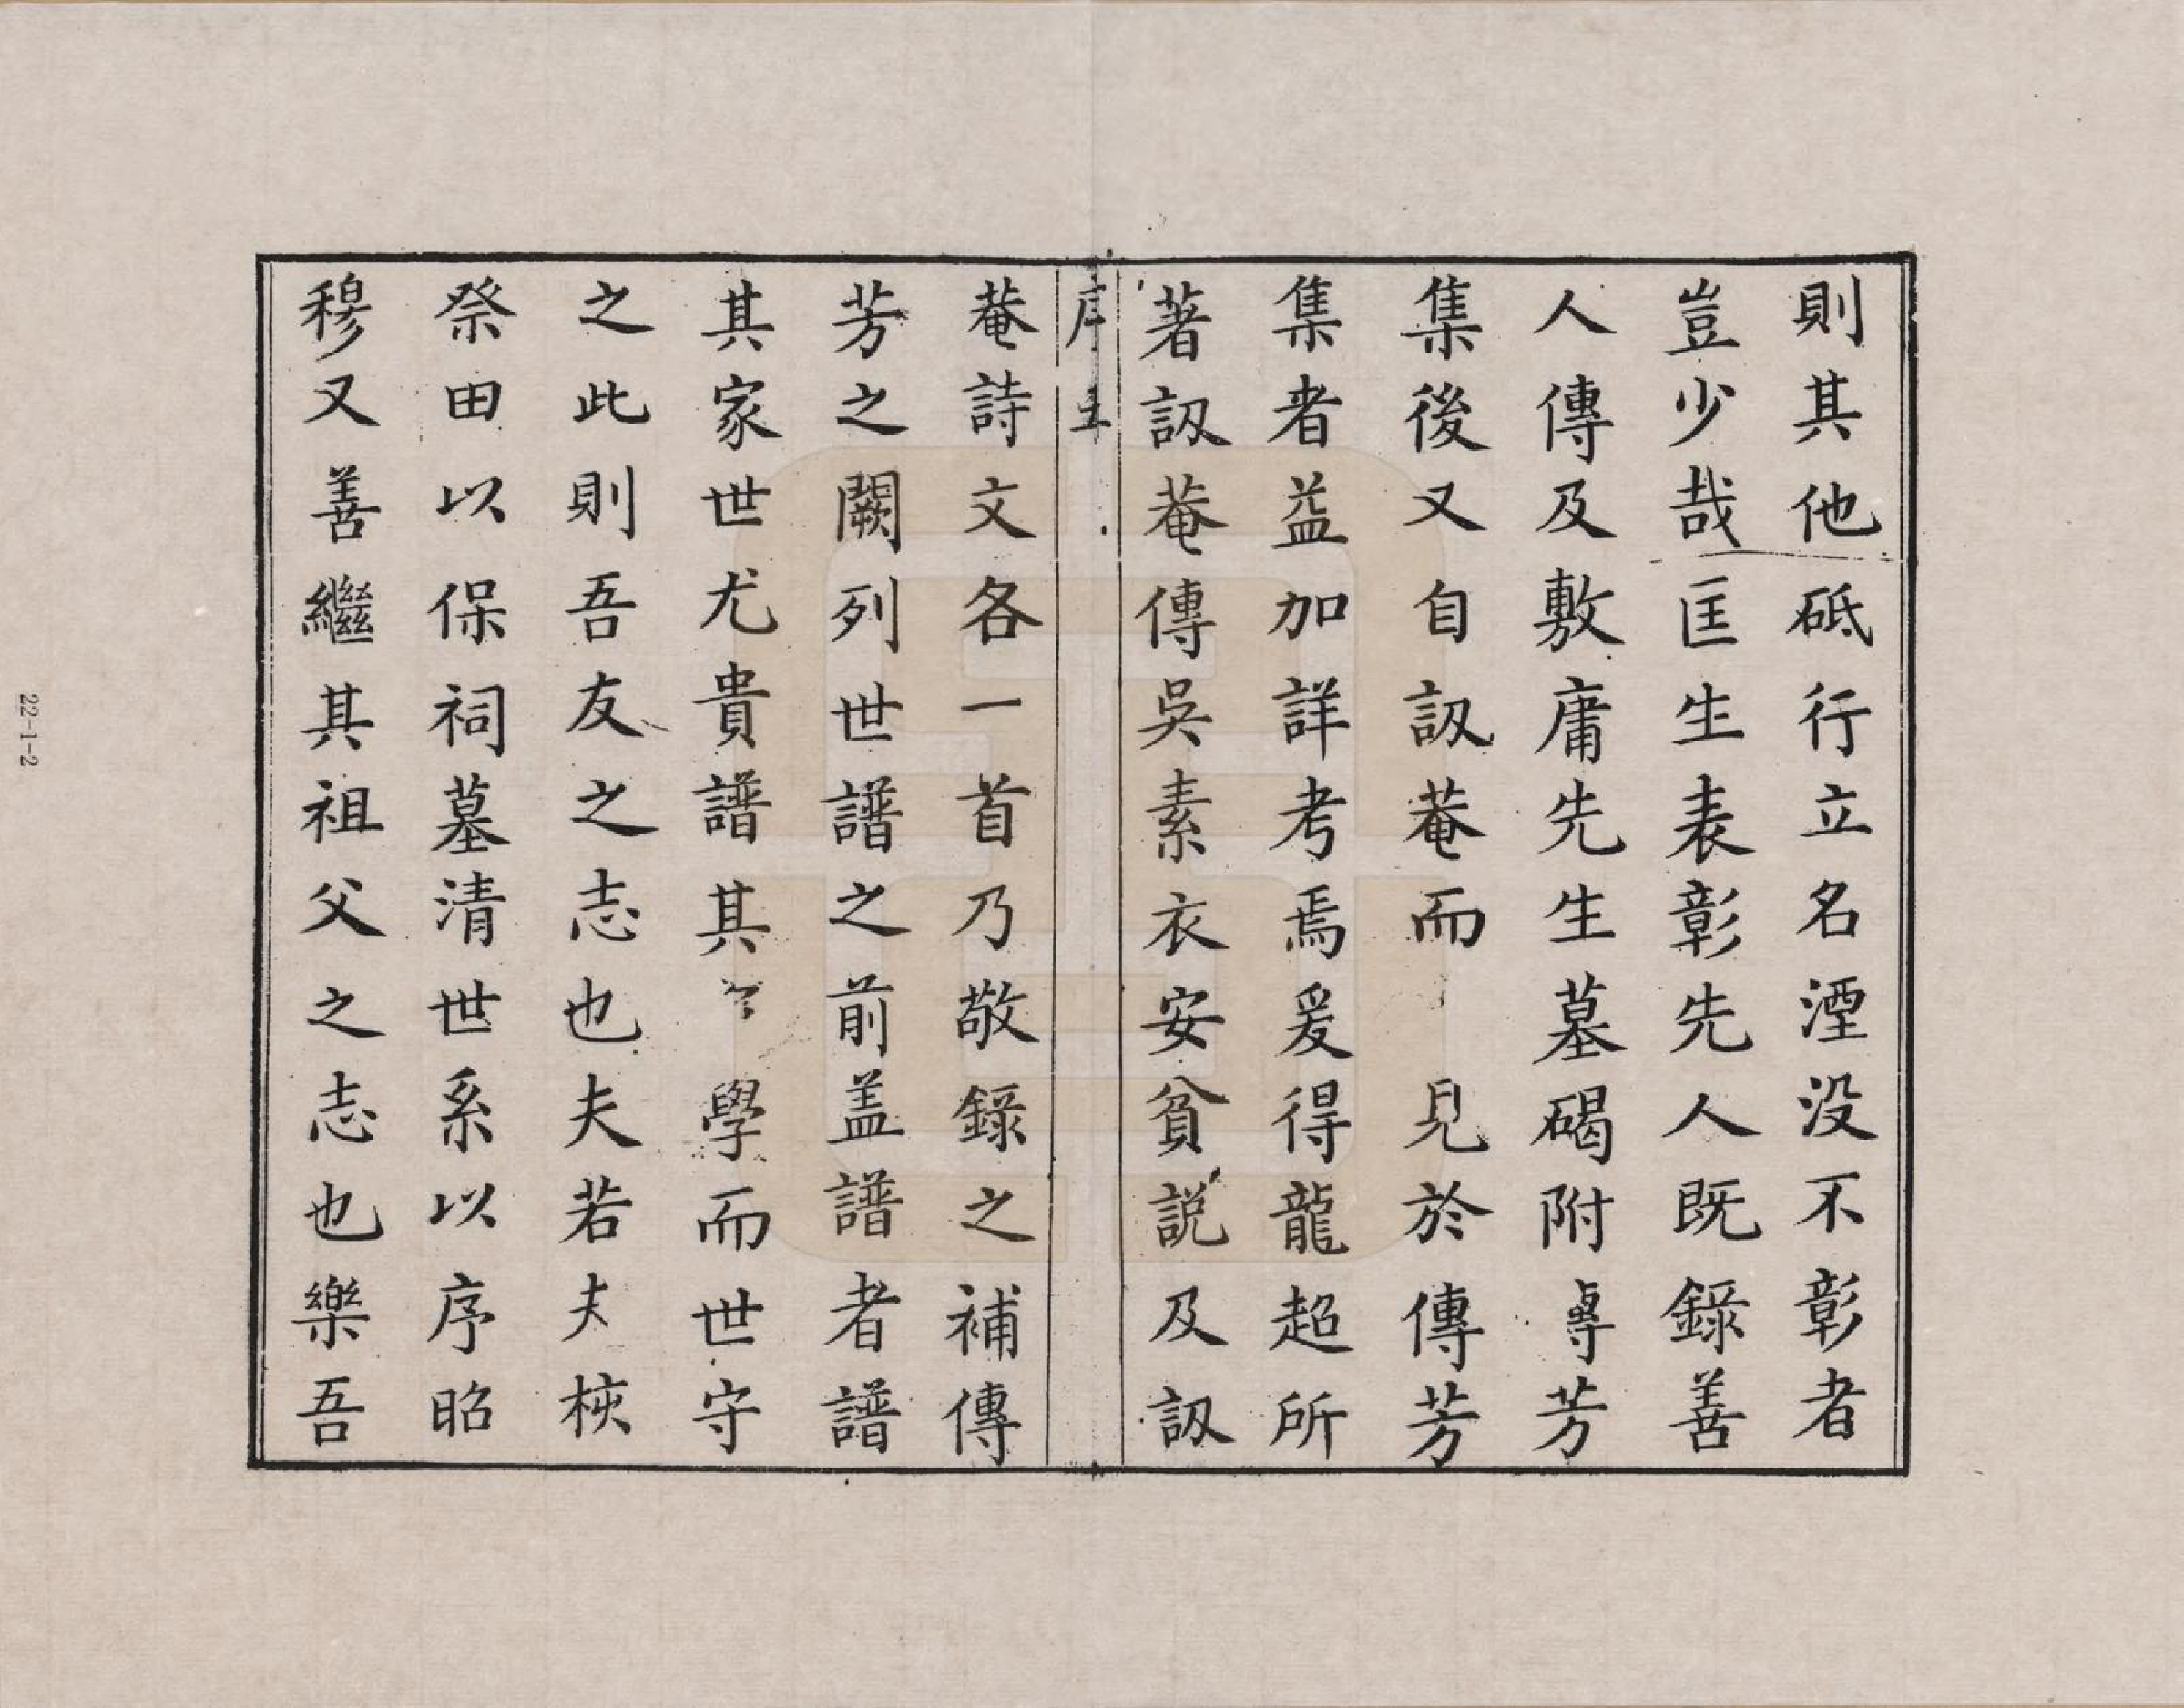 則其他砥行立名湮没不彰者
豈少哉匡生表彰先人既錄善
人傳及敷庸先生墓碣附傳芳
集後又自訒菴而　見於傳芳
集者益加詳考焉爰得龍超所
著訒菴傳吳素衣安貧説及訒
序五
菴詩文各一首乃敬錄之補傳
芳之闕列世譜之前盖譜者譜
其家世尤貴譜其　學而世守
之此則吾友之志也夫若夫梜
祭田以保祠墓清世系以序昭
穆又善繼其祖父之志也樂吾
22-1-2